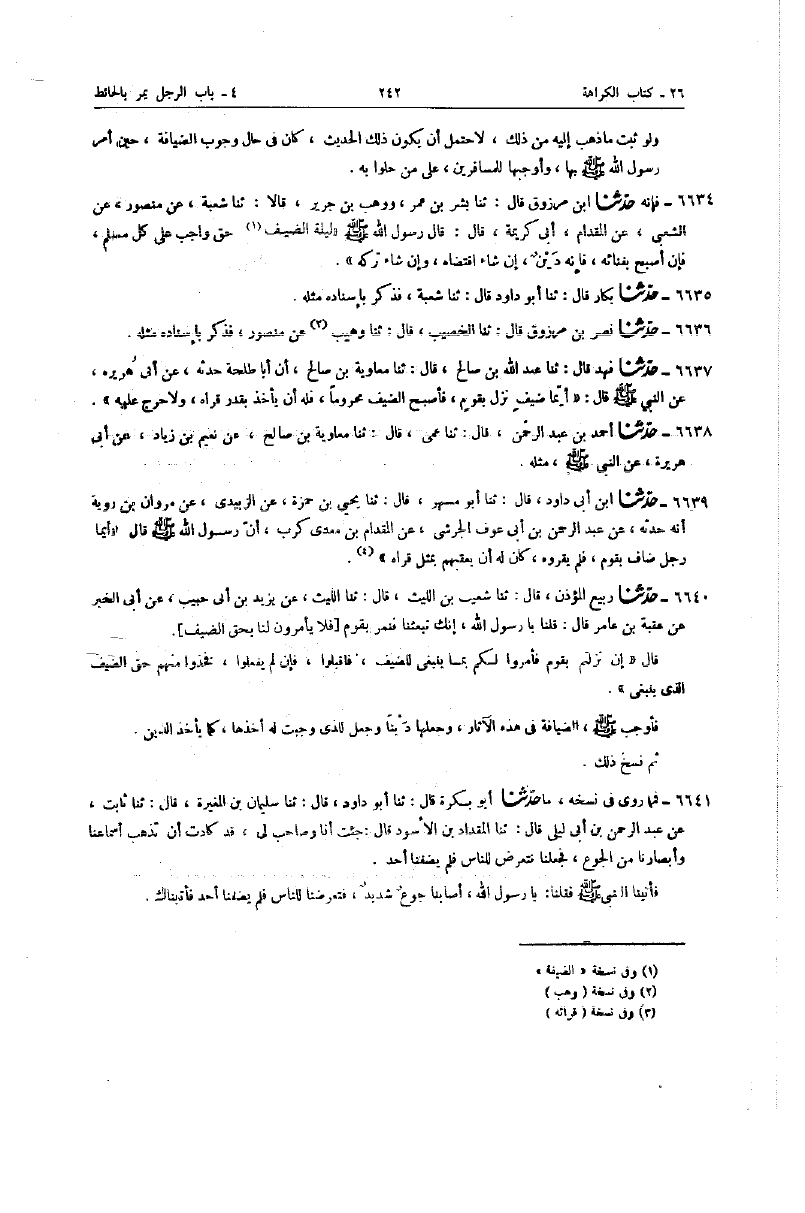 ٢٦ - كتاب الكراهة ٢٤٢ ٤ - باب الرجل يمر بالحائط
ولو ثبت ماذهب إليه من ذلك ، لاحتمل أن يكون ذلك الحديث ، كان فى حال وجوب الضيافة ، حين أمر
رسول الله ﷺ بها ، وأوجبها للمسافرين ، على من حلوا به .
٦٦٣٤ - فإنه حدّثنا ابن مرزوق قال : ثنا بشر بن عمر ، ووهب بن جرير ، قالا : ثنا شعبة ، عن منصور ، عن
الشعبى ، عن المقدام ، أبى كريمة ، قال : قال رسول الله ﷺ «ليلة الضيف (١) حق واجب على كل مسلم ،
فإن أصبح بفنائه ، فإنه دَيْنٌ ، إن شاء اقتضاه ، وإن شاء تركه » .
٦٦٣٥ - حدّثنا بكار قال : ثنا أبو داود قال : ثنا شعبة ، فذكر بإسناده مثله .
٦٦٣٦ - حدّثنا نصر بن مرزوق قال : ثنا الخصيب ، قال : ثنا وهيب (٢) عن منصور ، فذكر بإسناده مثله .
٦٦٣٧ - حدّثنا فهد قال : ثنا عبد الله بن صالح ، قال : ثنا معاوية بن صالح ، أن أبا طلحة حدثه ، عن أبى هُريره ،
عن النبي ﷺ قال : « أيّما ضيفٍ نزل بقومٍ ، فأصبح الضيف محروماً ، فله أن يأخذ بقدر قراه ، ولاحرج عليهه » .
٦٦٣٨ - حدّثنا أحمد بن عبد الرحمٰن ، قال : ثنا عمى ، قال : ثنا معاوية بن صالح ، عن نعيم بن زياد ، عن أبى
هريرة ، عن النبي ﷺ ، مثله .
٦٦٣٩ - حدّثنا ابن أبى داود ، قال : ثنا أبو مسهر ، قال : ثنا يحيى بن حمزة ، عن الزبيدى ، عن مروان بن روبة
أنه حدثه ، عن عبد الرحمن بن أبى عوف الجرشى ، عن المقدام بن معدى كرب ، أنّ رسول الله ﷺ قال «أيما
رجل ضاف بقوم ، فلم يقروه ، كان له أن يعقبهم بمثل قراه » (٤) .
٦٦٤٠ - حدّثنا ربيع المؤذن ، قال : ثنا شعيب بن الليث ، قال : ثنا الليث ، عن يزيد بن أبى حبيب ، عن أبى الخير
عن عقبة بن عامر قال : قلنا يا رسول الله ، إنك تبعثنا فنمر بقوم [فلا يأمرون لنا بحق الضيف].
قال « إن نزلتم بقوم فأمروا لكم بما ينبغى للضيف ، فاقبلوا ، فإن لم يفعلوا ، فخذوا منهم حق الضيف
الذى ينبغى » .
فأوجب ﷺ ، الضيافة فى هذه الآثار ، وجعلها دَيْناً وجعل للذى وجبت له أخذها ، كما يأخذ الدين .
ثم نسخ ذلك .
٦٦٤١ - فما روى فى نسخه ، ما حدّثنا أبو بكرة قال : ثنا أبو داود ، قال : ثنا سليمان بن المغيرة ، قال : ثنا ثابت ،
عن عبد الرحمن بن أبى ليلى قال : ثنا المقداد بن الأسود قال : جئت أنا وصاحب لى ، قد كادت أن تذهب أسماعنا
وأبصارنا من الجوع ، فجعلنا نتعرض للناس فلم يضفنا أحد .
فأتينا النبي ﷺ فقلنا: يا رسول الله ، أصابنا جوعٌ شديدٌ ، فتعرضنا للناس فلم يضفنا أحد فأتيناك .
(١) وفى نسخة « الضيفة »
(٢) وفى نسخة ( وهب )
(٣) وفى نسخة ( قراته )